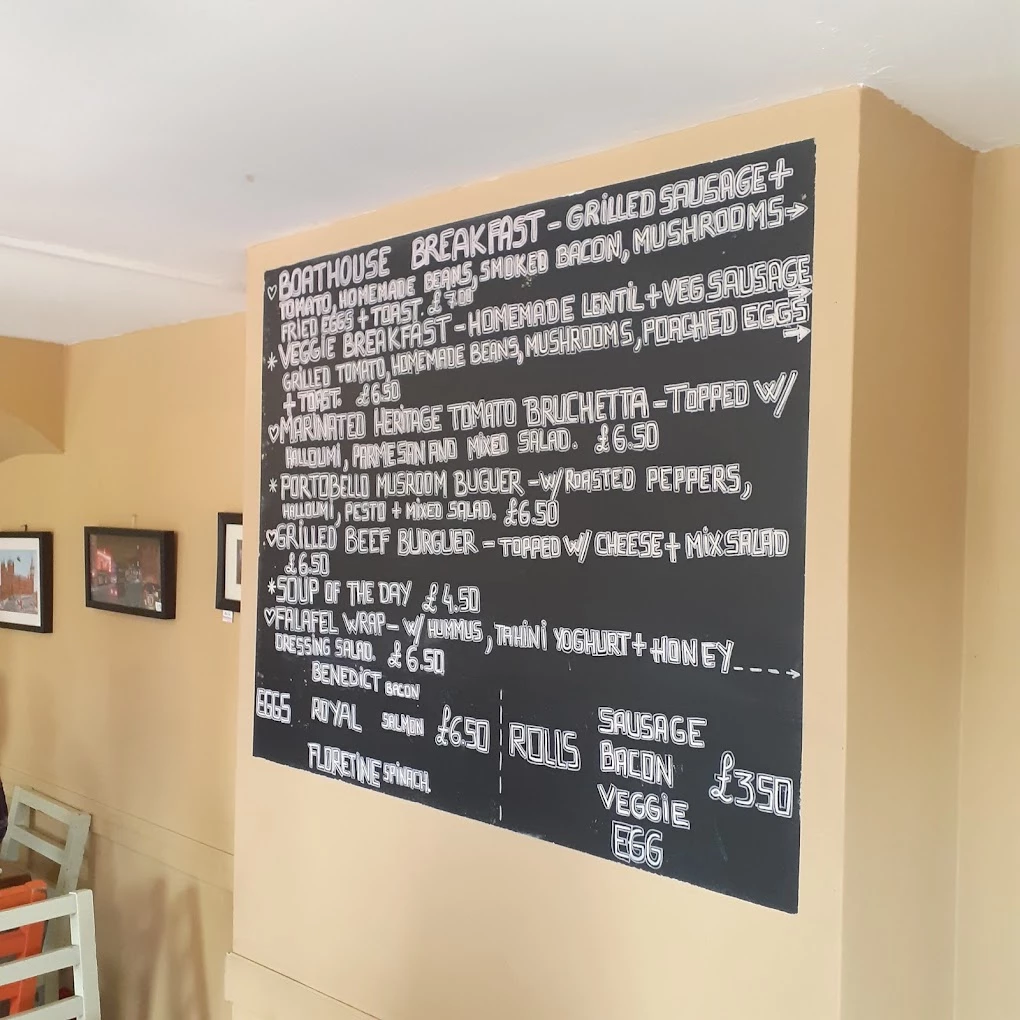 ♡ BOATHOUSE BREAKFAST - GRILLED SAUSAGE +
TOMATO, HOMEMADE BEANS, SMOKED BACON, MUSHROOMS →
FRIED EGGS + TOAST. £7.00
* VEGGIE BREAKFAST - HOMEMADE LENTIL + VEG SAUSAGE →
GRILLED TOMATO, HOMEMADE BEANS, MUSHROOMS, POACHED EGGS →
+ TOAST. £6.50
♡ MARINATED HERITAGE TOMATO BRUCHETTA - TOPPED W/
HALLOUMI, PARMESAN AND MIXED SALAD. £6.50
* PORTOBELLO MUSROOM BUGUER - W/ ROASTED PEPPERS,
HALLOUMI, PESTO + MIXED SALAD. £6.50
♡ GRILLED BEEF BURGUER - TOPPED W/ CHEESE + MIX SALAD
£6.50
* SOUP OF THE DAY £4.50
♡ FALAFEL WRAP - W/ HUMMUS, TAHINI YOGHURT + HONEY ----→
DRESSING SALAD. £6.50
BENEDICT BACON
EGGS ROYAL SALMON £6.50
FLORETINE SPINACH.
SAUSAGE
ROLLS BACON £3.50
VEGGIE
EGG